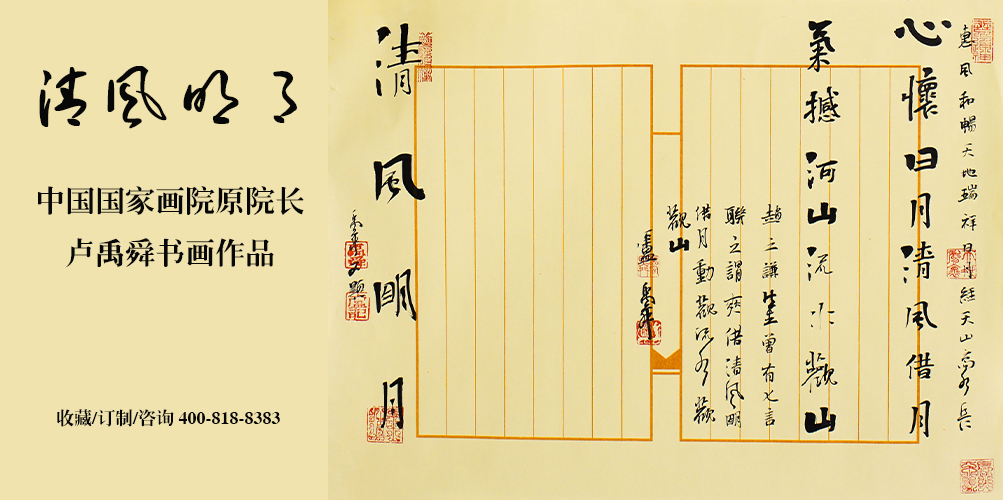 清风明月
中国国家画院原院长
卢禹舜书画作品
收藏/订制/咨询 400-818-8383
惠風和暢天地瑞祥日月經天山高水長
心懷日月清風借月
氣撼河山流水觀山
趙之謙生曾有七言
聯之謂爽借清風明
借月動觀流水
觀山
盧禹舜
清風明月
禹舜又題